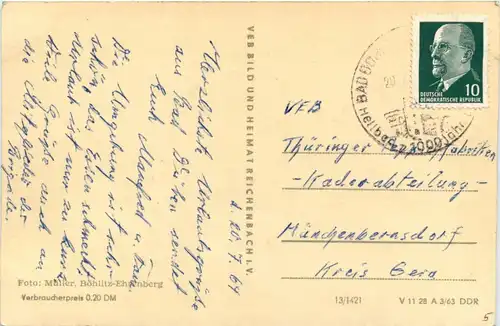 Herzlichste Urlaubsgrüße
aus Bad Düben sendet
Euch Manfred u. Frau
Die Umgebung ist sehr
schön, das Essen schmeckt
Urlaub ist nur zu kurz
Viele Grüße auch an
die Mitglieder der
Brigade
d. 20. 7. 64
VEB BILD UND HEIMAT REICHENBACH I. V.
Foto: Müller, Böhlitz-Ehrenberg
Verbraucherpreis 0,20 DM
BAD DÜBEN
1000 Jahre
10
DEUTSCHE
DEMOKRATISCHE REPUBLIK
VEB
Thüringer Teppichfabriken
- Kaderabteilung -
Münchenbernsdorf
Kreis Gera
13/1421
V 11 28 A 3/63 DDR
5